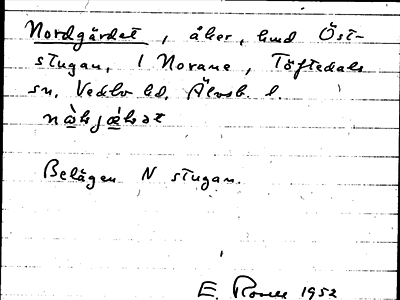 Nordgärdet, åker, hmd Öst-
stugan, 1 Norane, Töftedals
sn. Vedbo hd. Älvsb. l.
Belägen N stugan.
E. 1952